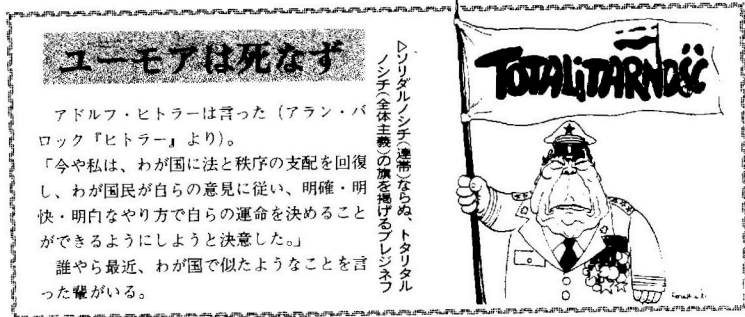 ユーモアは死なず
アドルフ・ヒトラーは言った（アラン・バ
ロック『ヒトラー』より）。
「今や私は、わが国に法と秩序の支配を回復
し、わが国民が自らの意見に従い、明確・明
快・明白なやり方で自らの運命を決めること
ができるようにしようと決意した。」
誰やら最近、わが国で似たようなことを言
った輩がいる。
▷ソリダルノシチ（連帯）ならぬ、トタリタル
ノシチ（全体主義）の旗を掲げるブレジネフ
TOTALITARNOŚĆ